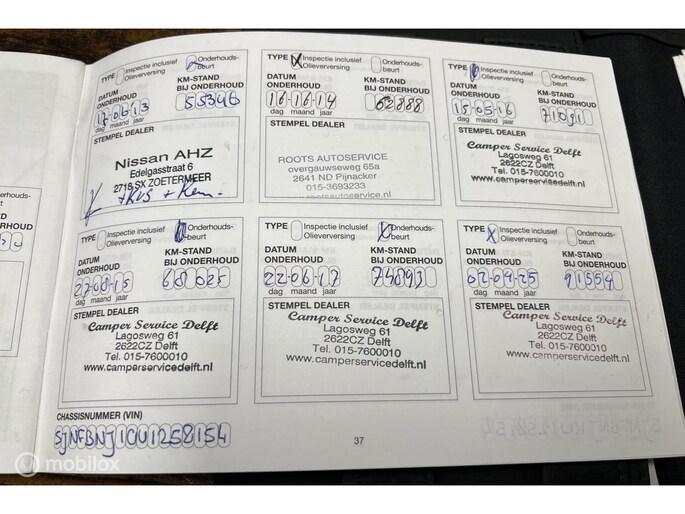 TYPE Inspectie inclusief Olieverversing Onderhouds-beurt
DATUM ONDERHOUD KM-STAND BIJ ONDERHOUD
17-06-13 55346
dag maand jaar
STEMPEL DEALER
Nissan AHZ
Edelgasstraat 6
2718 SX ZOETERMEER
TYPE Inspectie inclusief Olieverversing Onderhouds-beurt
DATUM ONDERHOUD KM-STAND BIJ ONDERHOUD
62888
dag maand jaar
STEMPEL DEALER
ROOTS AUTOSERVICE
overgauwseweg 65a
2641 ND Pijnacker
015-3693233
rootsautoservice.nl
TYPE Inspectie inclusief Olieverversing Onderhouds-beurt
DATUM ONDERHOUD KM-STAND BIJ ONDERHOUD
15-05-16 71091
dag maand jaar
STEMPEL DEALER
Camper Service Delft
Lagosweg 61
2622CZ Delft
Tel. 015-7600010
www.camperservicedelft.nl
TYPE Inspectie inclusief Olieverversing Onderhouds-beurt
DATUM ONDERHOUD KM-STAND BIJ ONDERHOUD
27-08-15 68025
dag maand jaar
STEMPEL DEALER
Camper Service Delft
Lagosweg 61
2622CZ Delft
Tel. 015-7600010
www.camperservicedelft.nl
TYPE Inspectie inclusief Olieverversing Onderhouds-beurt
DATUM ONDERHOUD KM-STAND BIJ ONDERHOUD
22-06-17 74893
dag maand jaar
STEMPEL DEALER
Camper Service Delft
Lagosweg 61
2622CZ Delft
Tel. 015-7600010
www.camperservicedelft.nl
TYPE Inspectie inclusief Olieverversing Onderhouds-beurt
DATUM ONDERHOUD KM-STAND BIJ ONDERHOUD
02-04-25 91554
dag maand jaar
STEMPEL DEALER
Camper Service Delft
Lagosweg 61
2622CZ Delft
Tel. 015-7600010
www.camperservicedelft.nl
CHASSISNUMMER (VIN)
SJNFBNJ10U1258154
37
mobilox